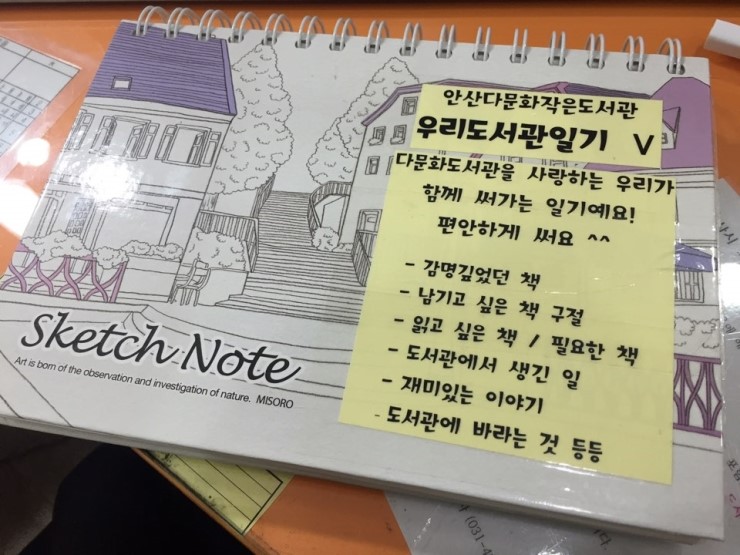 안산다문화작은도서관
우리도서관일기 V
다문화도서관을 사랑하는 우리가
함께 써가는 일기예요!
편안하게 써요 ^^
- 감명깊었던 책
- 남기고 싶은 책 구절
- 읽고 싶은 책 / 필요한 책
- 도서관에서 생긴 일
- 재미있는 이야기
- 도서관에 바라는 것 등등
Sketch Note
Art is born of the observation and investigation of nature. MISORO